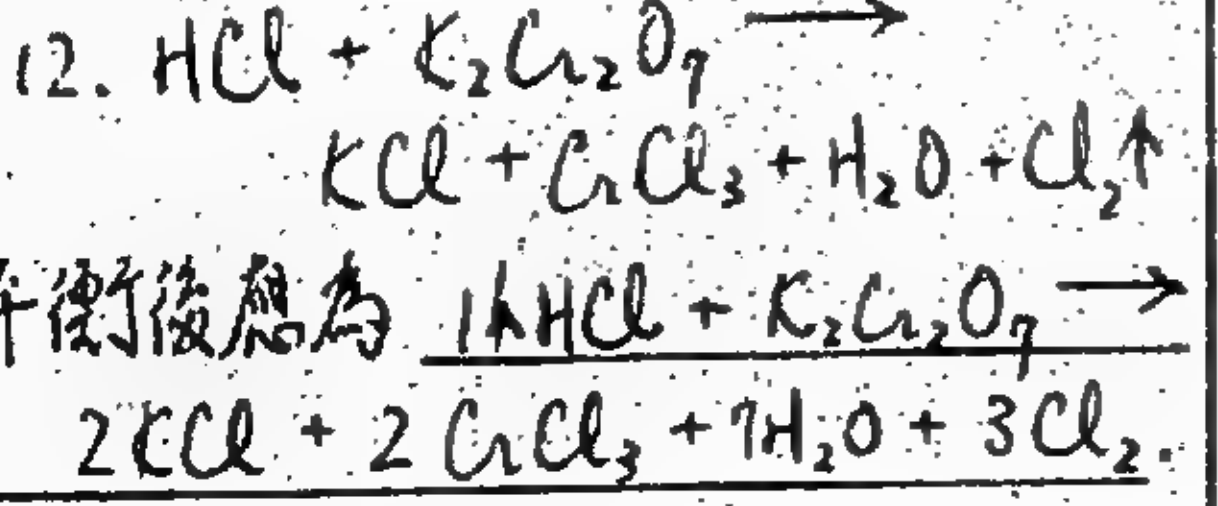 12. HCl + K₂Cr₂O₇ →
KCl + CrCl₃ + H₂O + Cl₂↑
平衡後應為 14HCl + K₂Cr₂O₇ →
2KCl + 2CrCl₃ + 7H₂O + 3Cl₂.